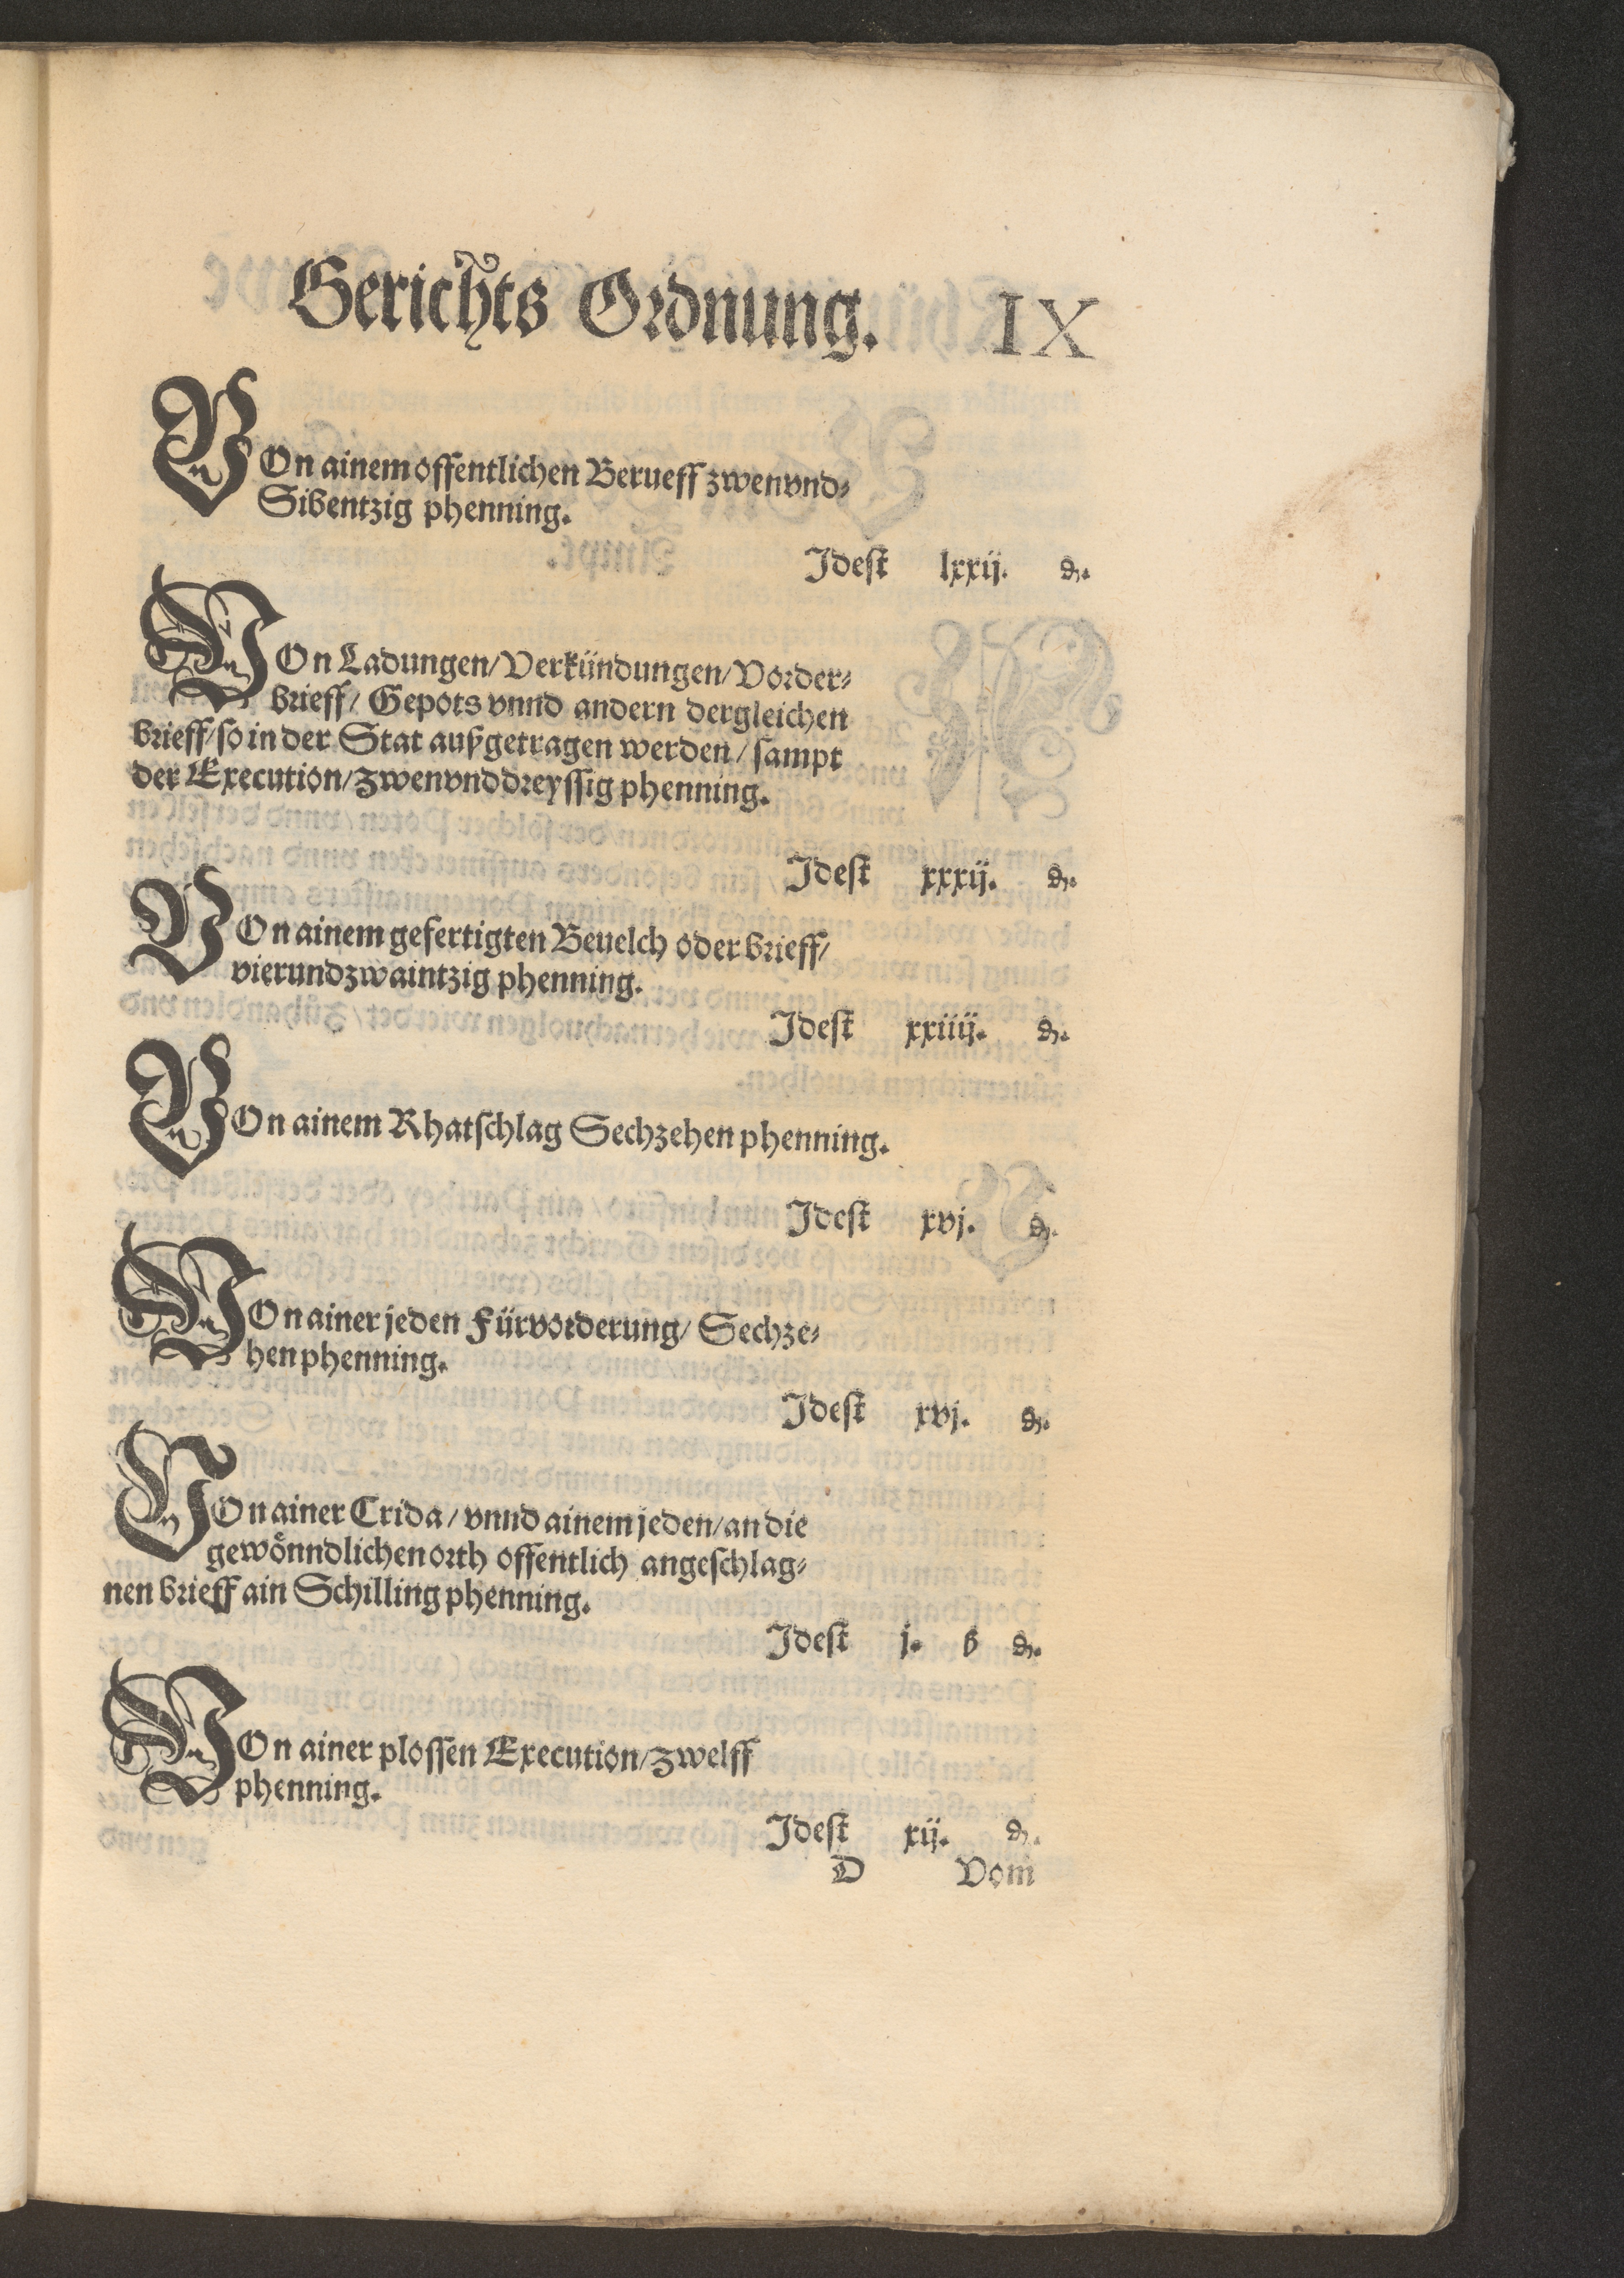 Gerichts Ordnung. IX
VOn ainem offentlichen Berueff zwenvnd⸗
Sibentzig phenning.
Idest lxxij. ₰.
VOn Ladungen/ Verkündungen/ Vorder⸗
brieff/ Gepots vnnd andern dergleichen
brieff/ so in der Stat außgetragen werden/ sampt
der Execution/ zwenvnddreyssig phenning.
Idest xxxij. ₰.
VOn ainem gefertigten Beuelch oder brieff/
vierundzwaintzig phenning.
Idest xxiiij. ₰.
VOn ainem Rhatschlag Sechzehen phenning.
Idest xvj. ₰.
VOn ainer jeden Fürvorderung/ Sechze⸗
hen phenning.
Idest xvj. ₰.
VOn ainer Crida/ vnnd ainem jeden/ an die
gewönndlichen orth offentlich angeschlag⸗
nen brieff ain Schilling phenning.
Idest j. ß ₰.
VOn ainer plossen Execution/ zwelff
phenning.
Idest xij. ₰.
D Vom